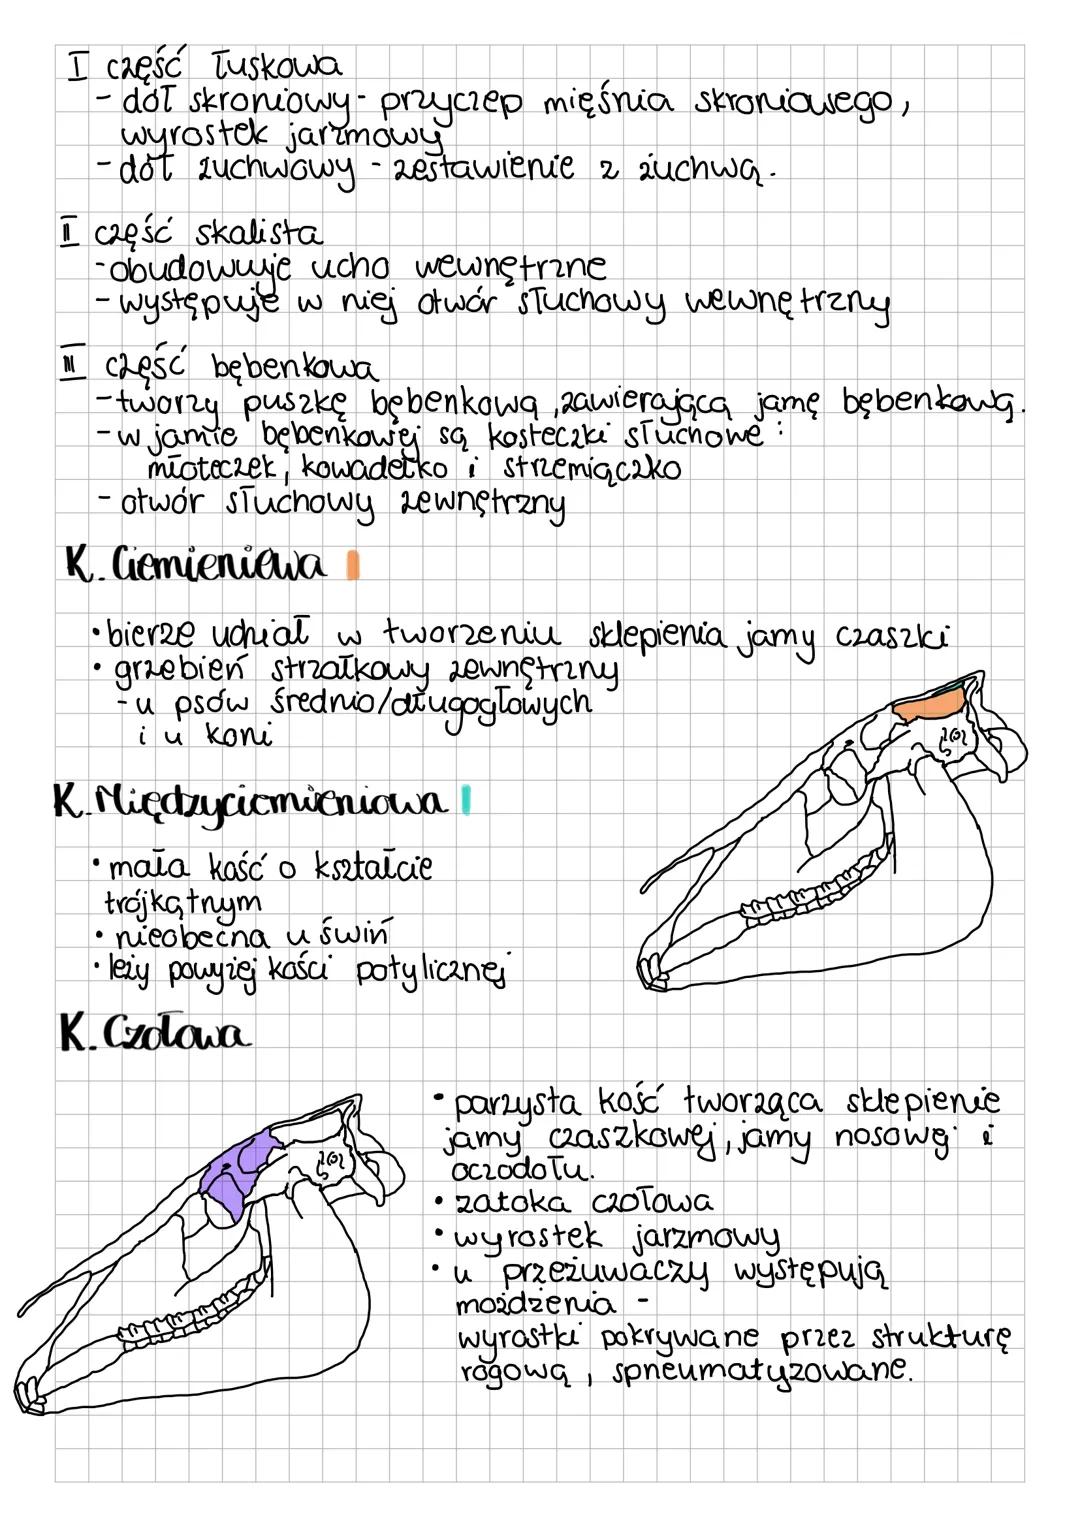 I część łuskowa
- dół skroniowy - przyczep mięśnia skroniowego,
wyrostek jarzmowy
- dół żuchwowy - zestawienie z żuchwą.
II część skalista
- obudowuje ucho wewnętrzne
- występuje w niej otwór słuchowy wewnętrzny
III część bębenkowa
- tworzy puszkę bębenkową, zawierającą jamę bębenkową.
- w jamie bębenkowej są kosteczki słuchowe :
młoteczek, kowadełko i strzemiączko
- otwór słuchowy zewnętrzny
K. Ciemieniowa
• bierze udział w tworzeniu sklepienia jamy czaszki
• grzebień strzałkowy zewnętrzny
- u psów średnio/długogłowych
i u koni
K. Międzyciemieniowa
• mała kość o kształcie
trójkątnym
• nieobecna u świń
• leży powyżej kości potylicznej
K. Czołowa
• parzysta kość tworząca sklepienie
jamy czaszkowej, jamy nosowej i
oczodołu.
• zatoka czołowa
• wyrostek jarzmowy
• u przeżuwaczy występują
możdżenia -
wyrostki pokrywane przez strukturę
rogową, spneumatyzowane.